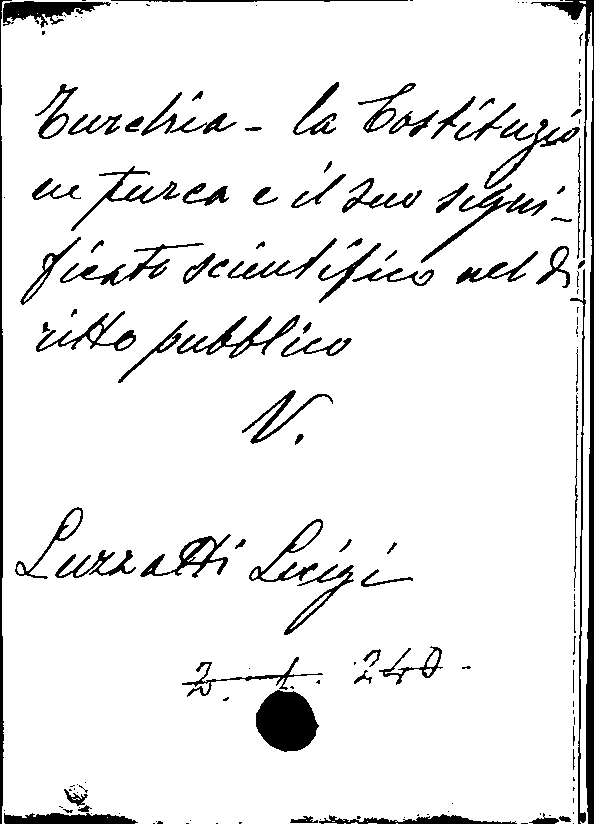 Turchia - la Costituzio
ne turca e il suo signi-
ficato scientifico nel di-
ritto pubblico
V.
Luzzatti Luigi
2. 1. 240